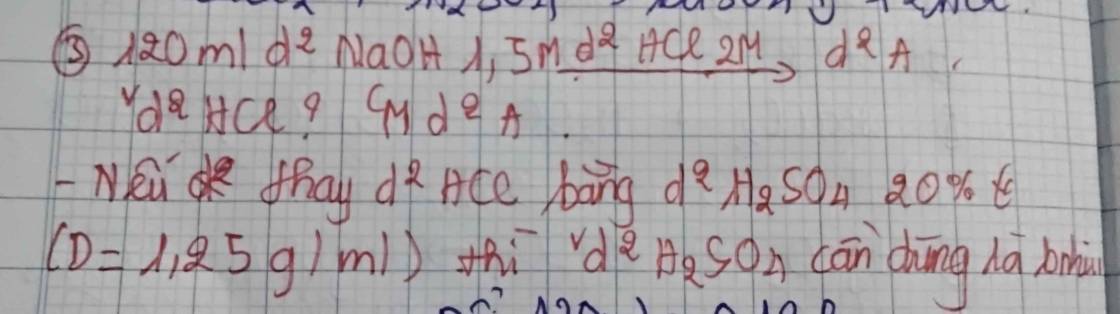 ③ 120ml d² NaOH 1,5M d² HCl 2M d² A.
Vd² HCl? CM d² A.
- Nếu thay d² HCl bằng d² H₂SO₄ 20%
(D = 1,25 g/ml) thì Vd² H₂SO₄ cần dùng là bnhiu